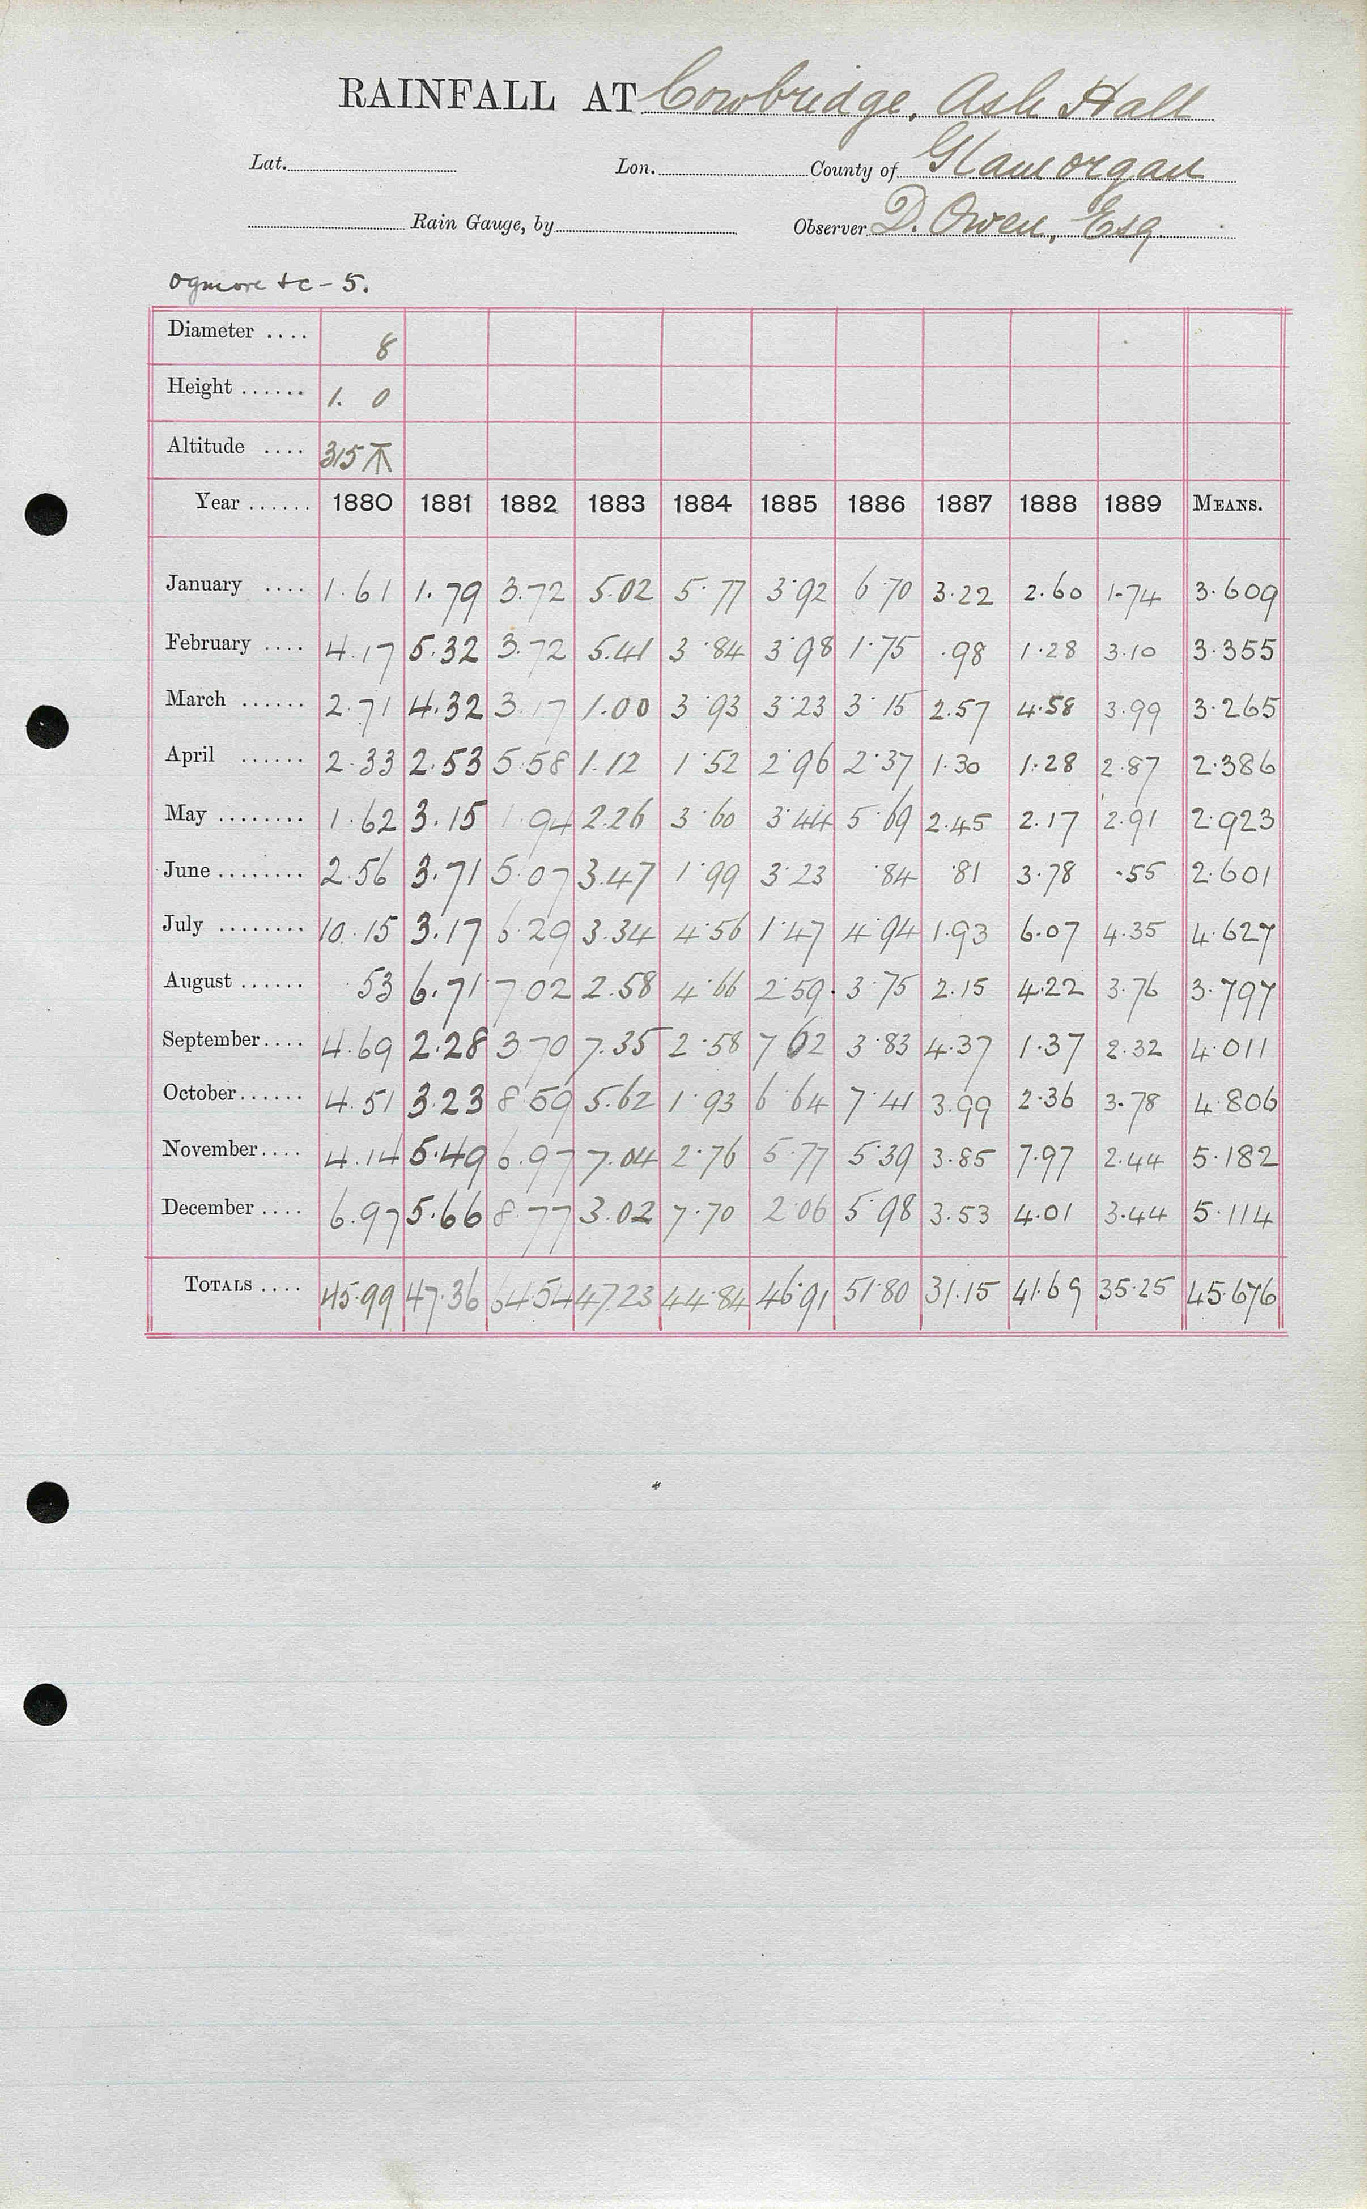 RAINFALL AT Cowbridge, Ash Hall
Lat. Lon. County of Glamorgan
Rain Gauge, by Observer D. Owen, Esq
Ogmore &c - 5.
Diameter .... 8
Height ...... 1. 0
Altitude .... 315
Year ...... 1880 1881 1882 1883 1884 1885 1886 1887 1888 1889 MEANS.
January .... 1.61 1.79 3.72 5.02 5.77 3.92 6.70 3.22 2.60 1.74 3.609
February .... 4.17 5.32 3.72 5.41 3.84 3.98 1.75 .98 1.28 3.10 3.355
March ...... 2.71 4.32 3.17 1.00 3.93 3.23 3.15 2.57 4.58 3.99 3.265
April ...... 2.33 2.53 5.58 1.12 1.52 2.96 2.37 1.30 1.28 2.87 2.386
May ........ 1.62 3.15 1.94 2.26 3.60 3.44 5.69 2.45 2.17 2.91 2.923
June ........ 2.56 3.71 5.07 3.47 1.99 3.23 .84 .81 3.78 .55 2.601
July ........ 10.15 3.17 6.29 3.34 4.56 1.47 4.94 1.93 6.07 4.35 4.627
August ...... .53 6.71 7.02 2.58 4.66 2.59 3.75 2.15 4.22 3.76 3.797
September.... 4.69 2.28 3.70 7.35 2.58 7.62 3.83 4.37 1.37 2.32 4.011
October...... 4.51 3.23 8.59 5.62 1.93 6.64 7.41 3.99 2.36 3.78 4.806
November.... 4.14 5.49 6.97 7.04 2.76 5.77 5.39 3.85 7.97 2.44 5.182
December .... 6.97 5.66 8.77 3.02 7.70 2.06 5.98 3.53 4.01 3.44 5.114
TOTALS .... 45.99 47.36 64.54 47.23 44.84 46.91 51.80 31.15 41.69 35.25 45.676